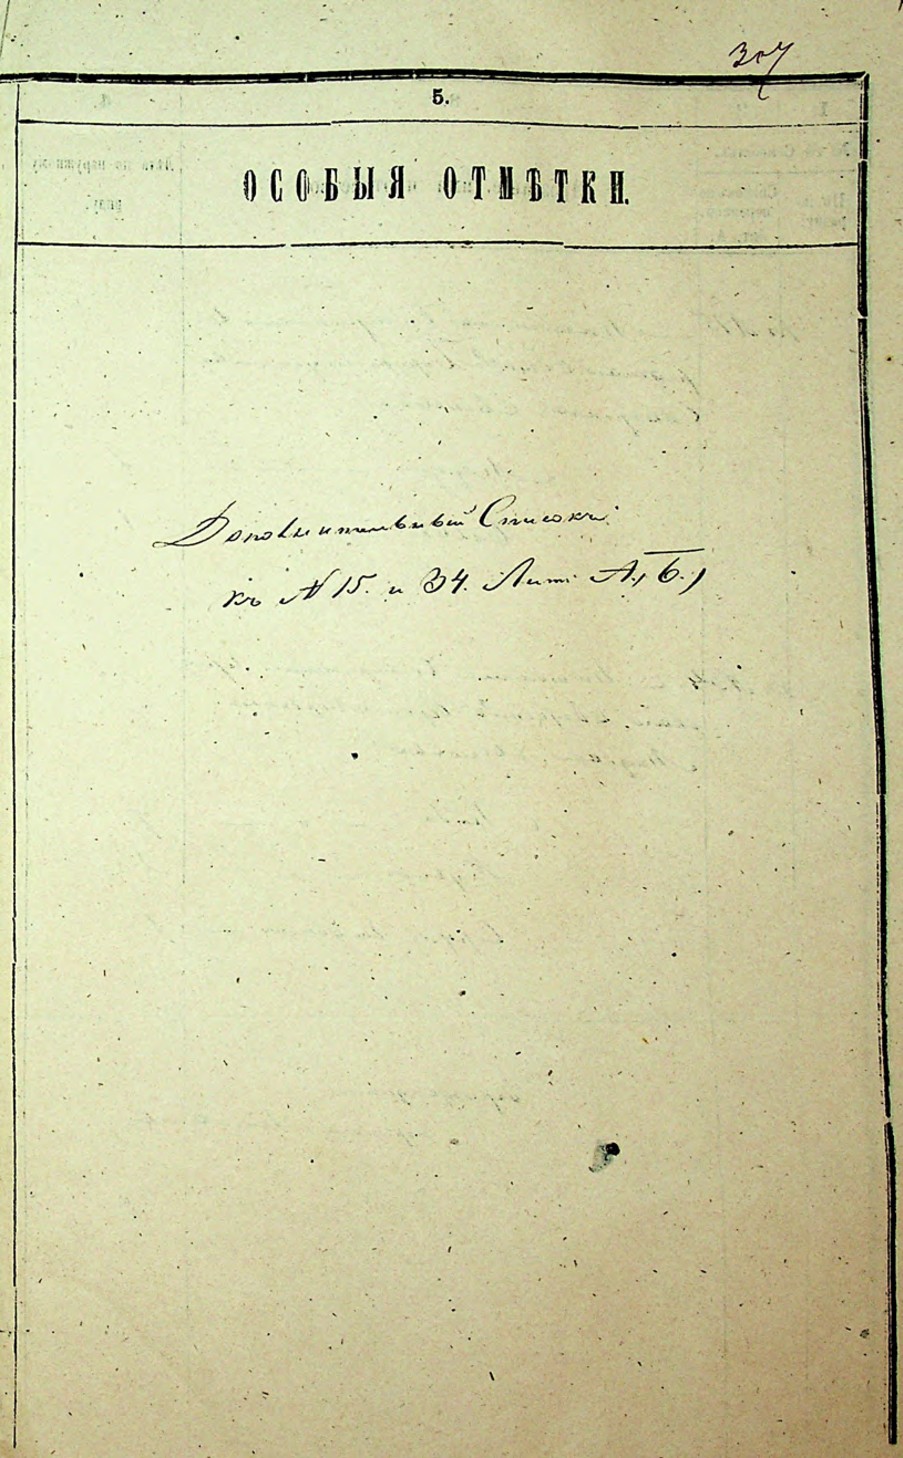 307
5.
ОСОБЫЯ ОТМѢТКИ.
Дополнительный Списокъ
къ N 15. и 34. Лит. А., Б.,